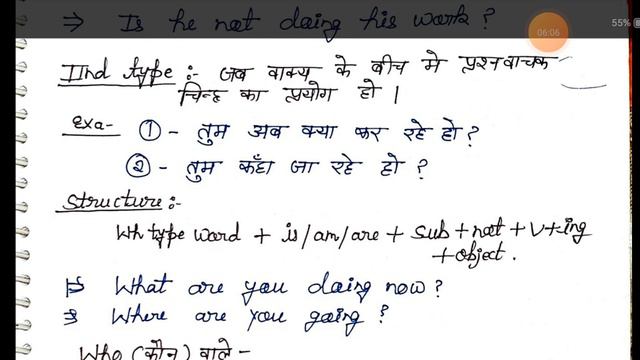 ⇒ Is he not doing his work?
06:06
55%
IInd type :- जब वाक्य के बीच मे प्रश्नवाचक
चिन्ह का प्रयोग हो |
Exa- ① - तुम अब क्या कर रहे हो ?
② - तुम कहाँ जा रहे हो ?
Structure :-
Wh type word + is/am/are + sub + not + V+ing
+ object .
⇒ What are you doing now ?
⇒ Where are you going ?
Who (कौन) वाले -